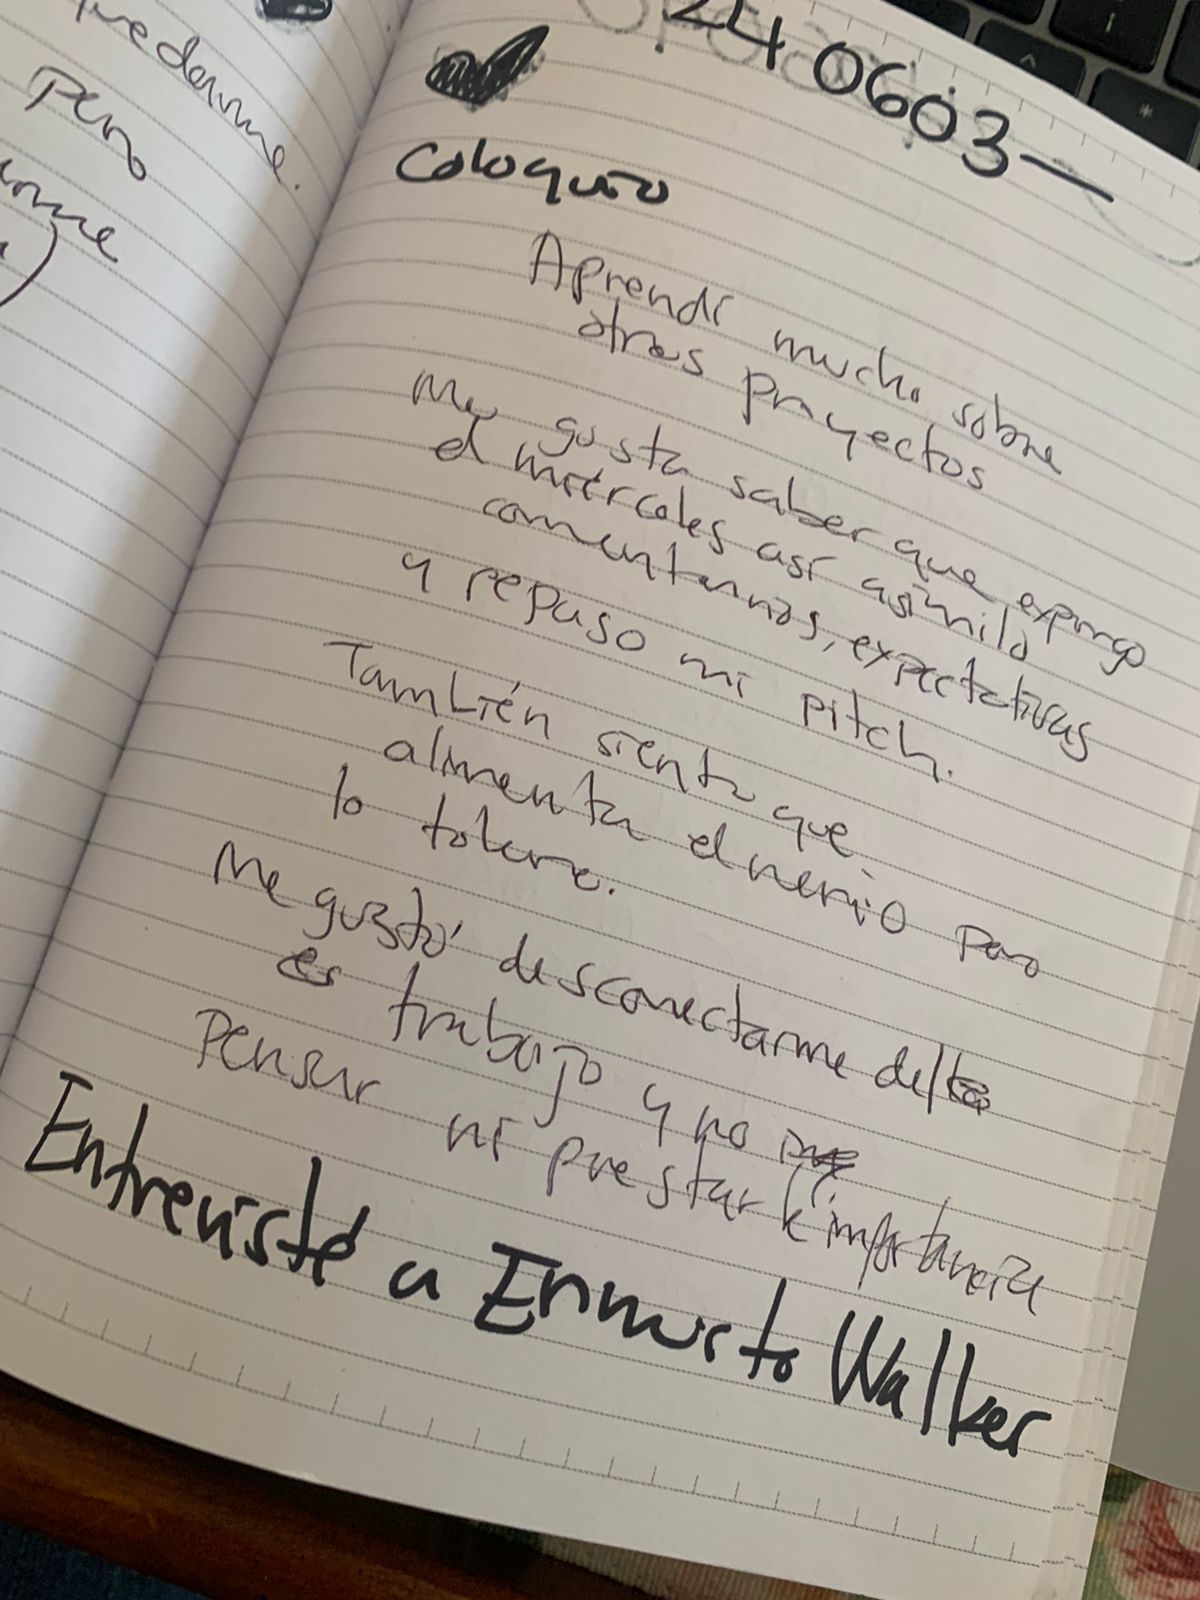 quedarme.
Pero
240603
Coloquio
Aprendí mucho sobre
otros proyectos
Me gusta saber que expongo
el miércoles así asimilo
comentarios, expectativas
y repaso mi pitch.
También siento que
alimenta el nervio pero
lo tolero.
Me gustó desconectarme del
es trabajo y no
pensar ni prestarle importancia
Entrevisté a Ernesto Walker